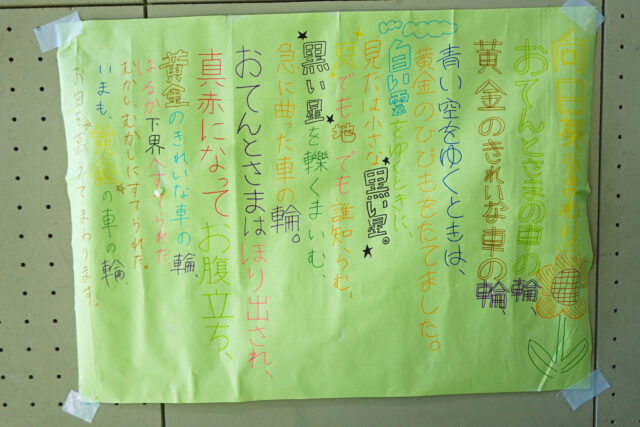 向日葵(ひまわり)
おてんとさまの車の輪、
黄金のきれいな車の輪、
青い空をゆくときは、
黄金のひびきをたてました。
白い雲をゆくときに、
見たは小さな黒い星。
天でも地でも誰知らぬ、
黒い星を轢くまいと、
急に曲った車の輪。
おてんとさまはほり出され、
真赤になってお腹立ち、
黄金のきれいな車の輪、
はるか下界へすてられた、
むかし、むかしにすてられた。
いまも、黄金の車の輪、
お日を慕うてまわります。